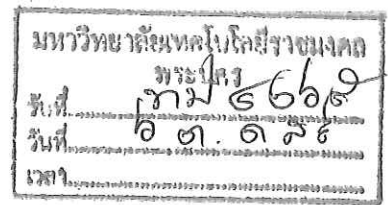 มหาวิทยาลัยเทคโนโลยีราชมงคล
พระนคร
รับที่
วันที่ ๖ ต.ค.
เวลา